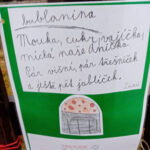 bublanina
Mouka, cukr, vajíčka,
míchá naše Anička.
Pár višní, pár třešniček
a ještě pět jabliček.